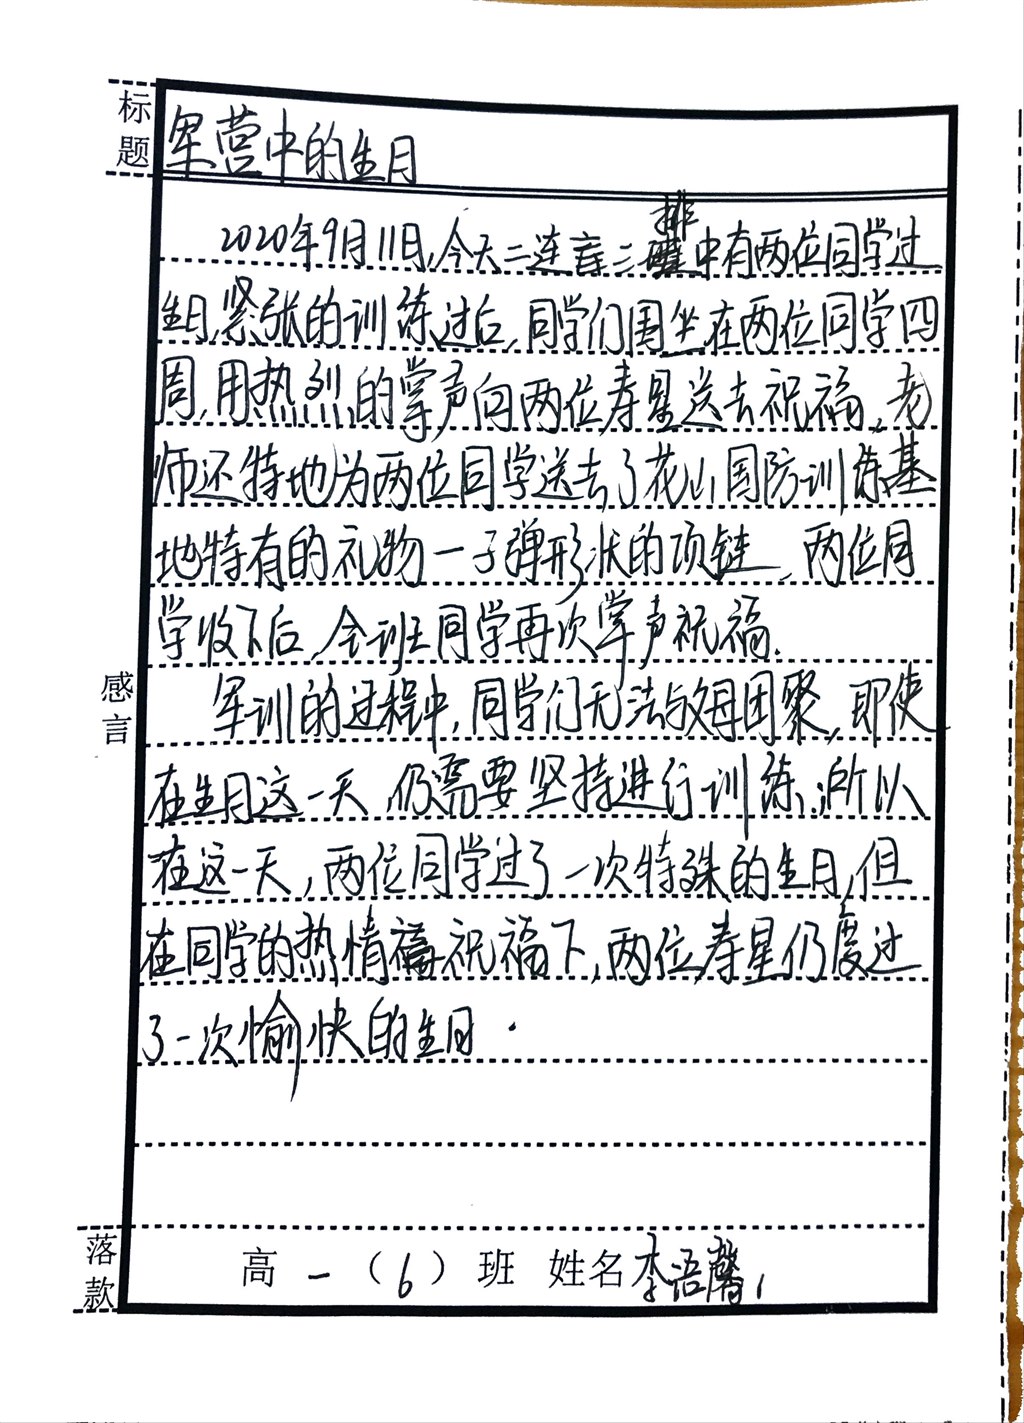 标题
军营中的生日
2020年9月11日,今天二连二排中有两位同学过
生日,紧张的训练过后,同学们围坐在两位同学四
周,用热烈的掌声向两位寿星送去祝福,老
师还特地为两位同学送去了花山国防训练基
地特有的礼物一子弹形状的项链,两位同
学收下后,全班同学再次掌声祝福.
感言
军训的过程中,同学们无法与父母团聚,即使
在生日这一天,仍需要坚持进行训练,所以
在这一天,两位同学过了一次特殊的生日,但
在同学的热情祝福下,两位寿星仍度过
了一次愉快的生日.
落款
高一(6)班 姓名李语馨